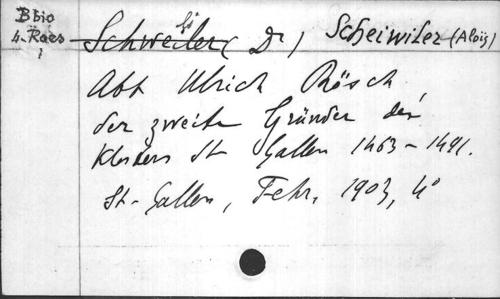 B bio
4. Roes
1
Schweiler (Dr) Scheiwiler (Alois)
Abt Ulrich Rösch,
der zweite Gründer des
Klosters St Gallen 1463-1491.
St-Gallen, Fehr, 1903, 4°